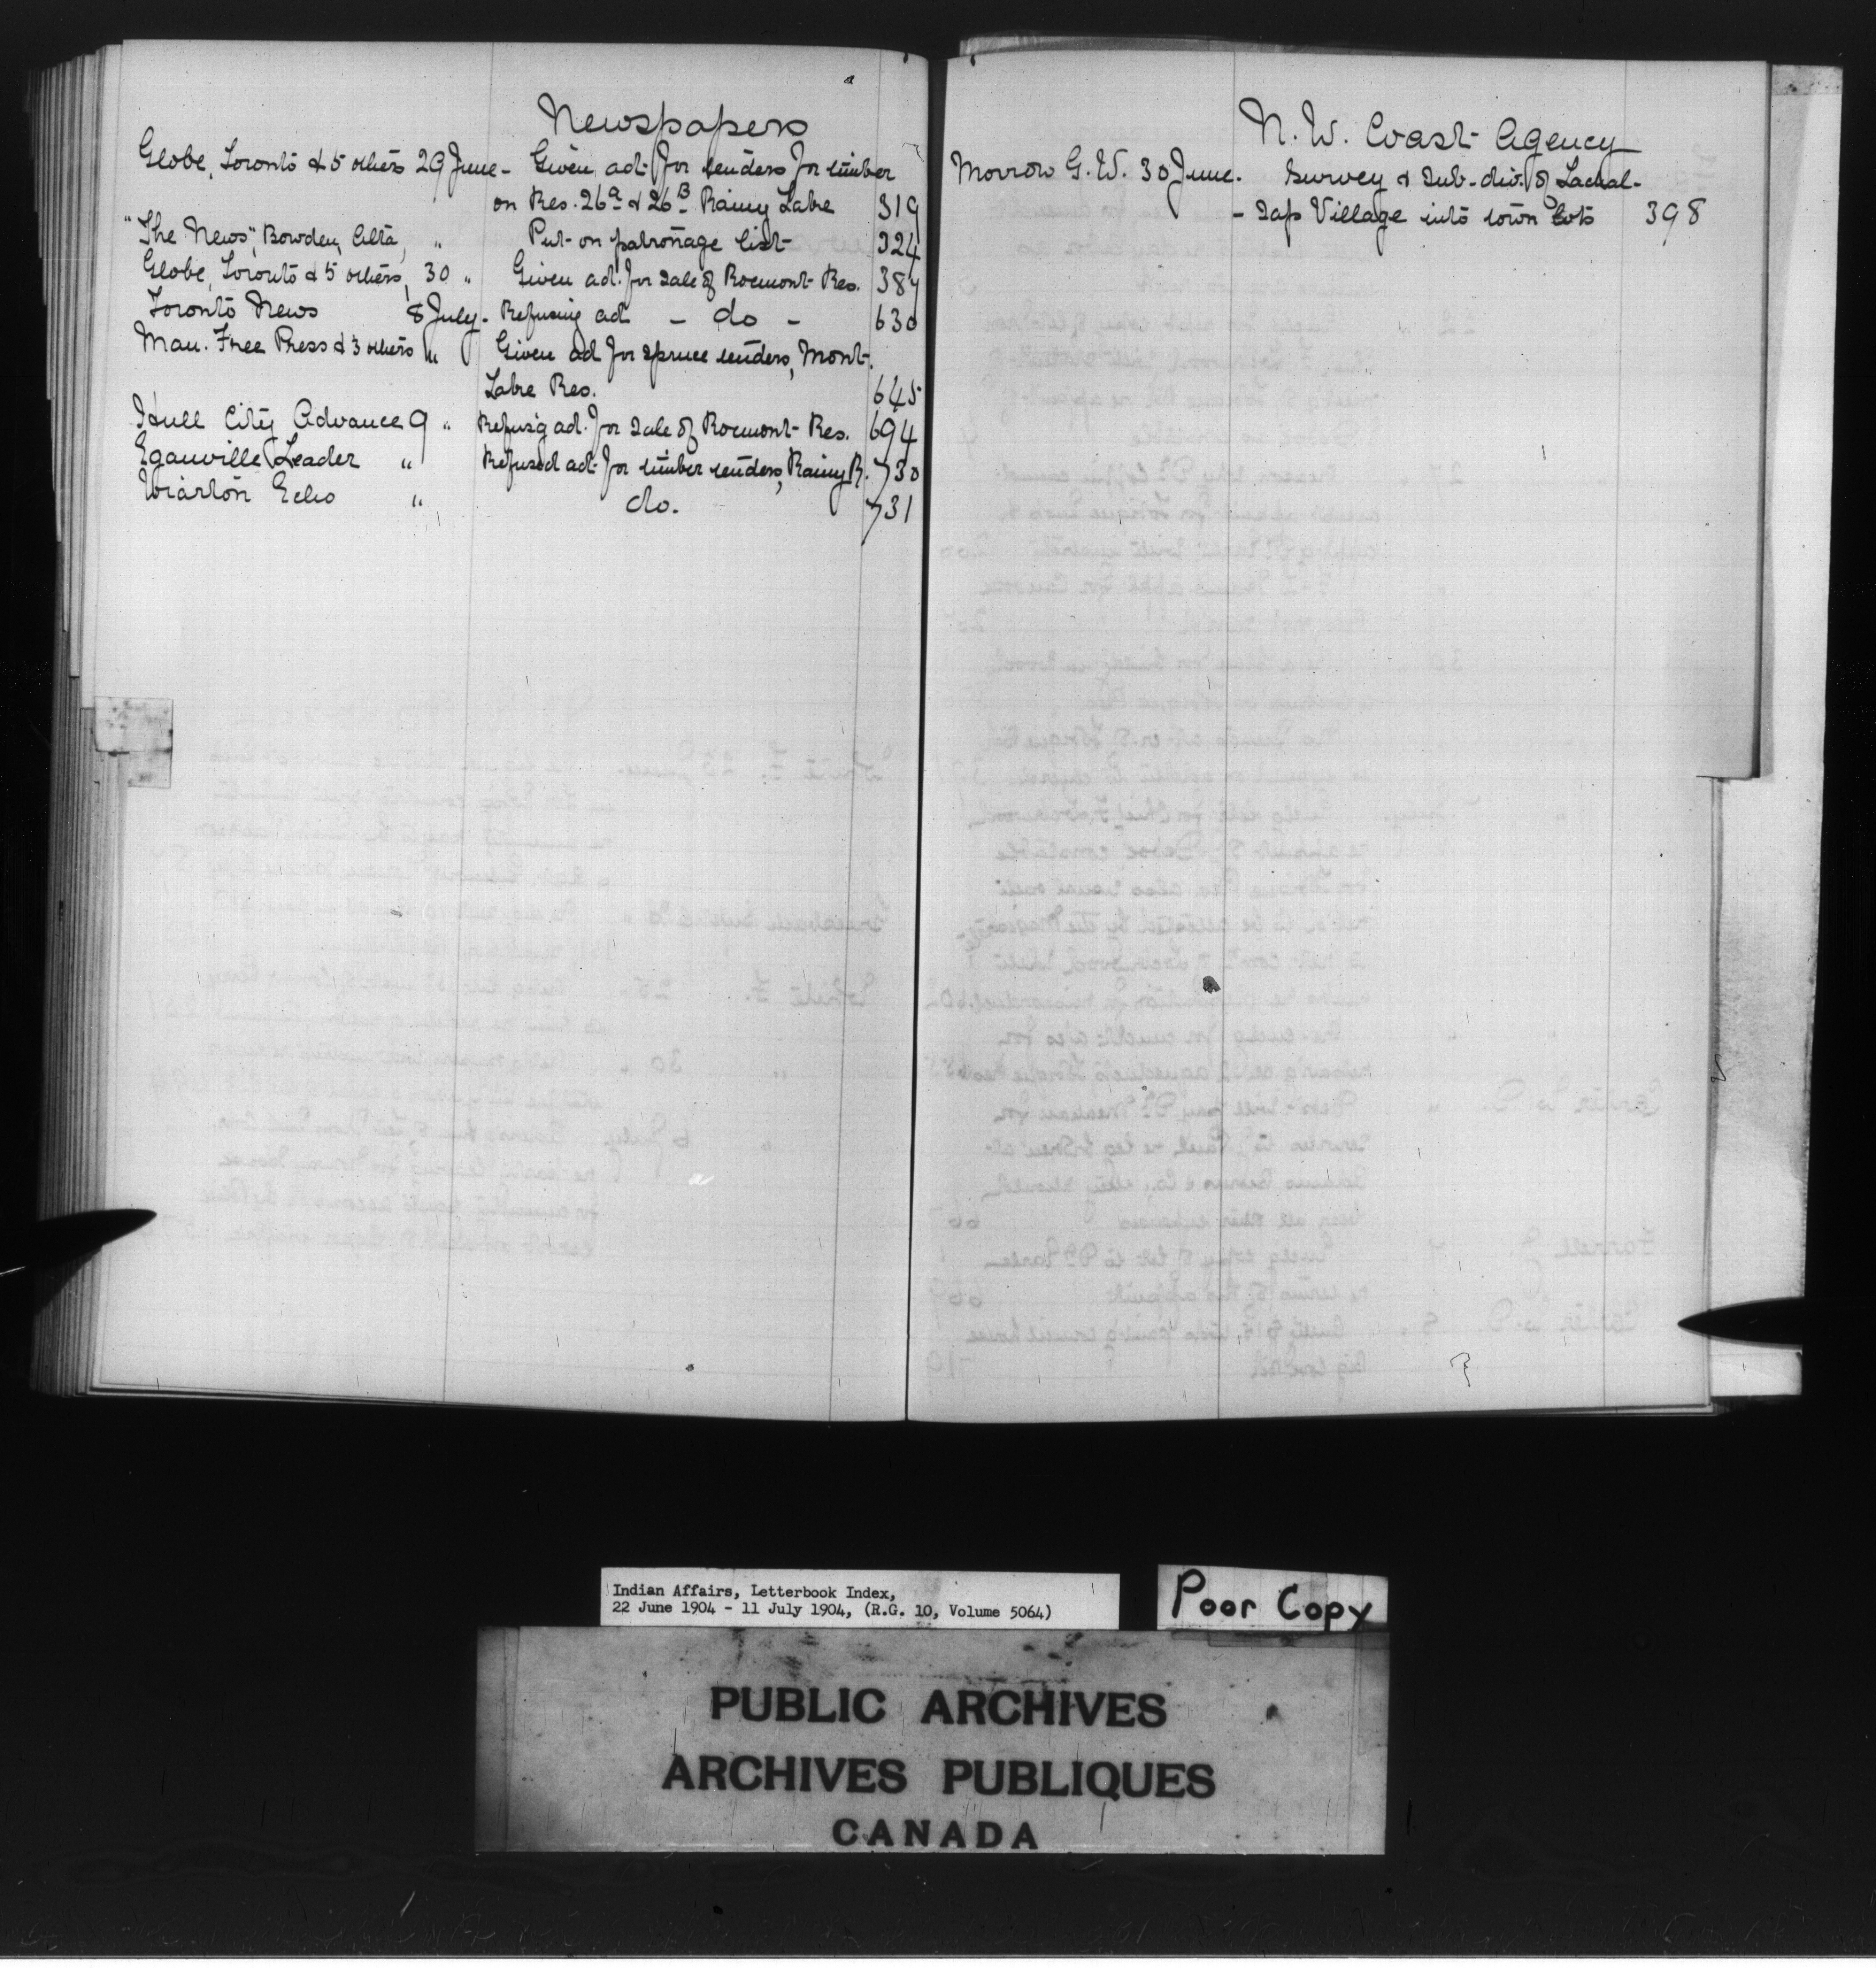 Newspapers
Globe, Toronto & 5 others 29 June - Given adt. for tenders for timber
on Res. 26a & 26B Rainy Lake 319
"The News", Bowden, Alta, " Put on patronage list 324
Globe, Toronto & 5 others, 30 " Given adt. for sale of Rocmont Res. 387
Toronto News 8 July. Refusing ad - do - 630
Man. Free Press & 3 others " Given ad for spruce tenders, Mont.
Lake Res. 645
Hull City Advance 9 " Refus'g ad. for sale of Rocmont Res. 694
Eganville Leader " Refused adt. for timber tenders, Rainy R. 730
Wiarton Echo " do. 731
N. W. Coast Agency
Morrow G. W. 30 June. Survey & Sub-div. of Lackal-
- zap Village into town lots 398
Indian Affairs, Letterbook Index,
22 June 1904 - 11 July 1904, (R.G. 10, Volume 5064)
Poor Copy
PUBLIC ARCHIVES
ARCHIVES PUBLIQUES
CANADA